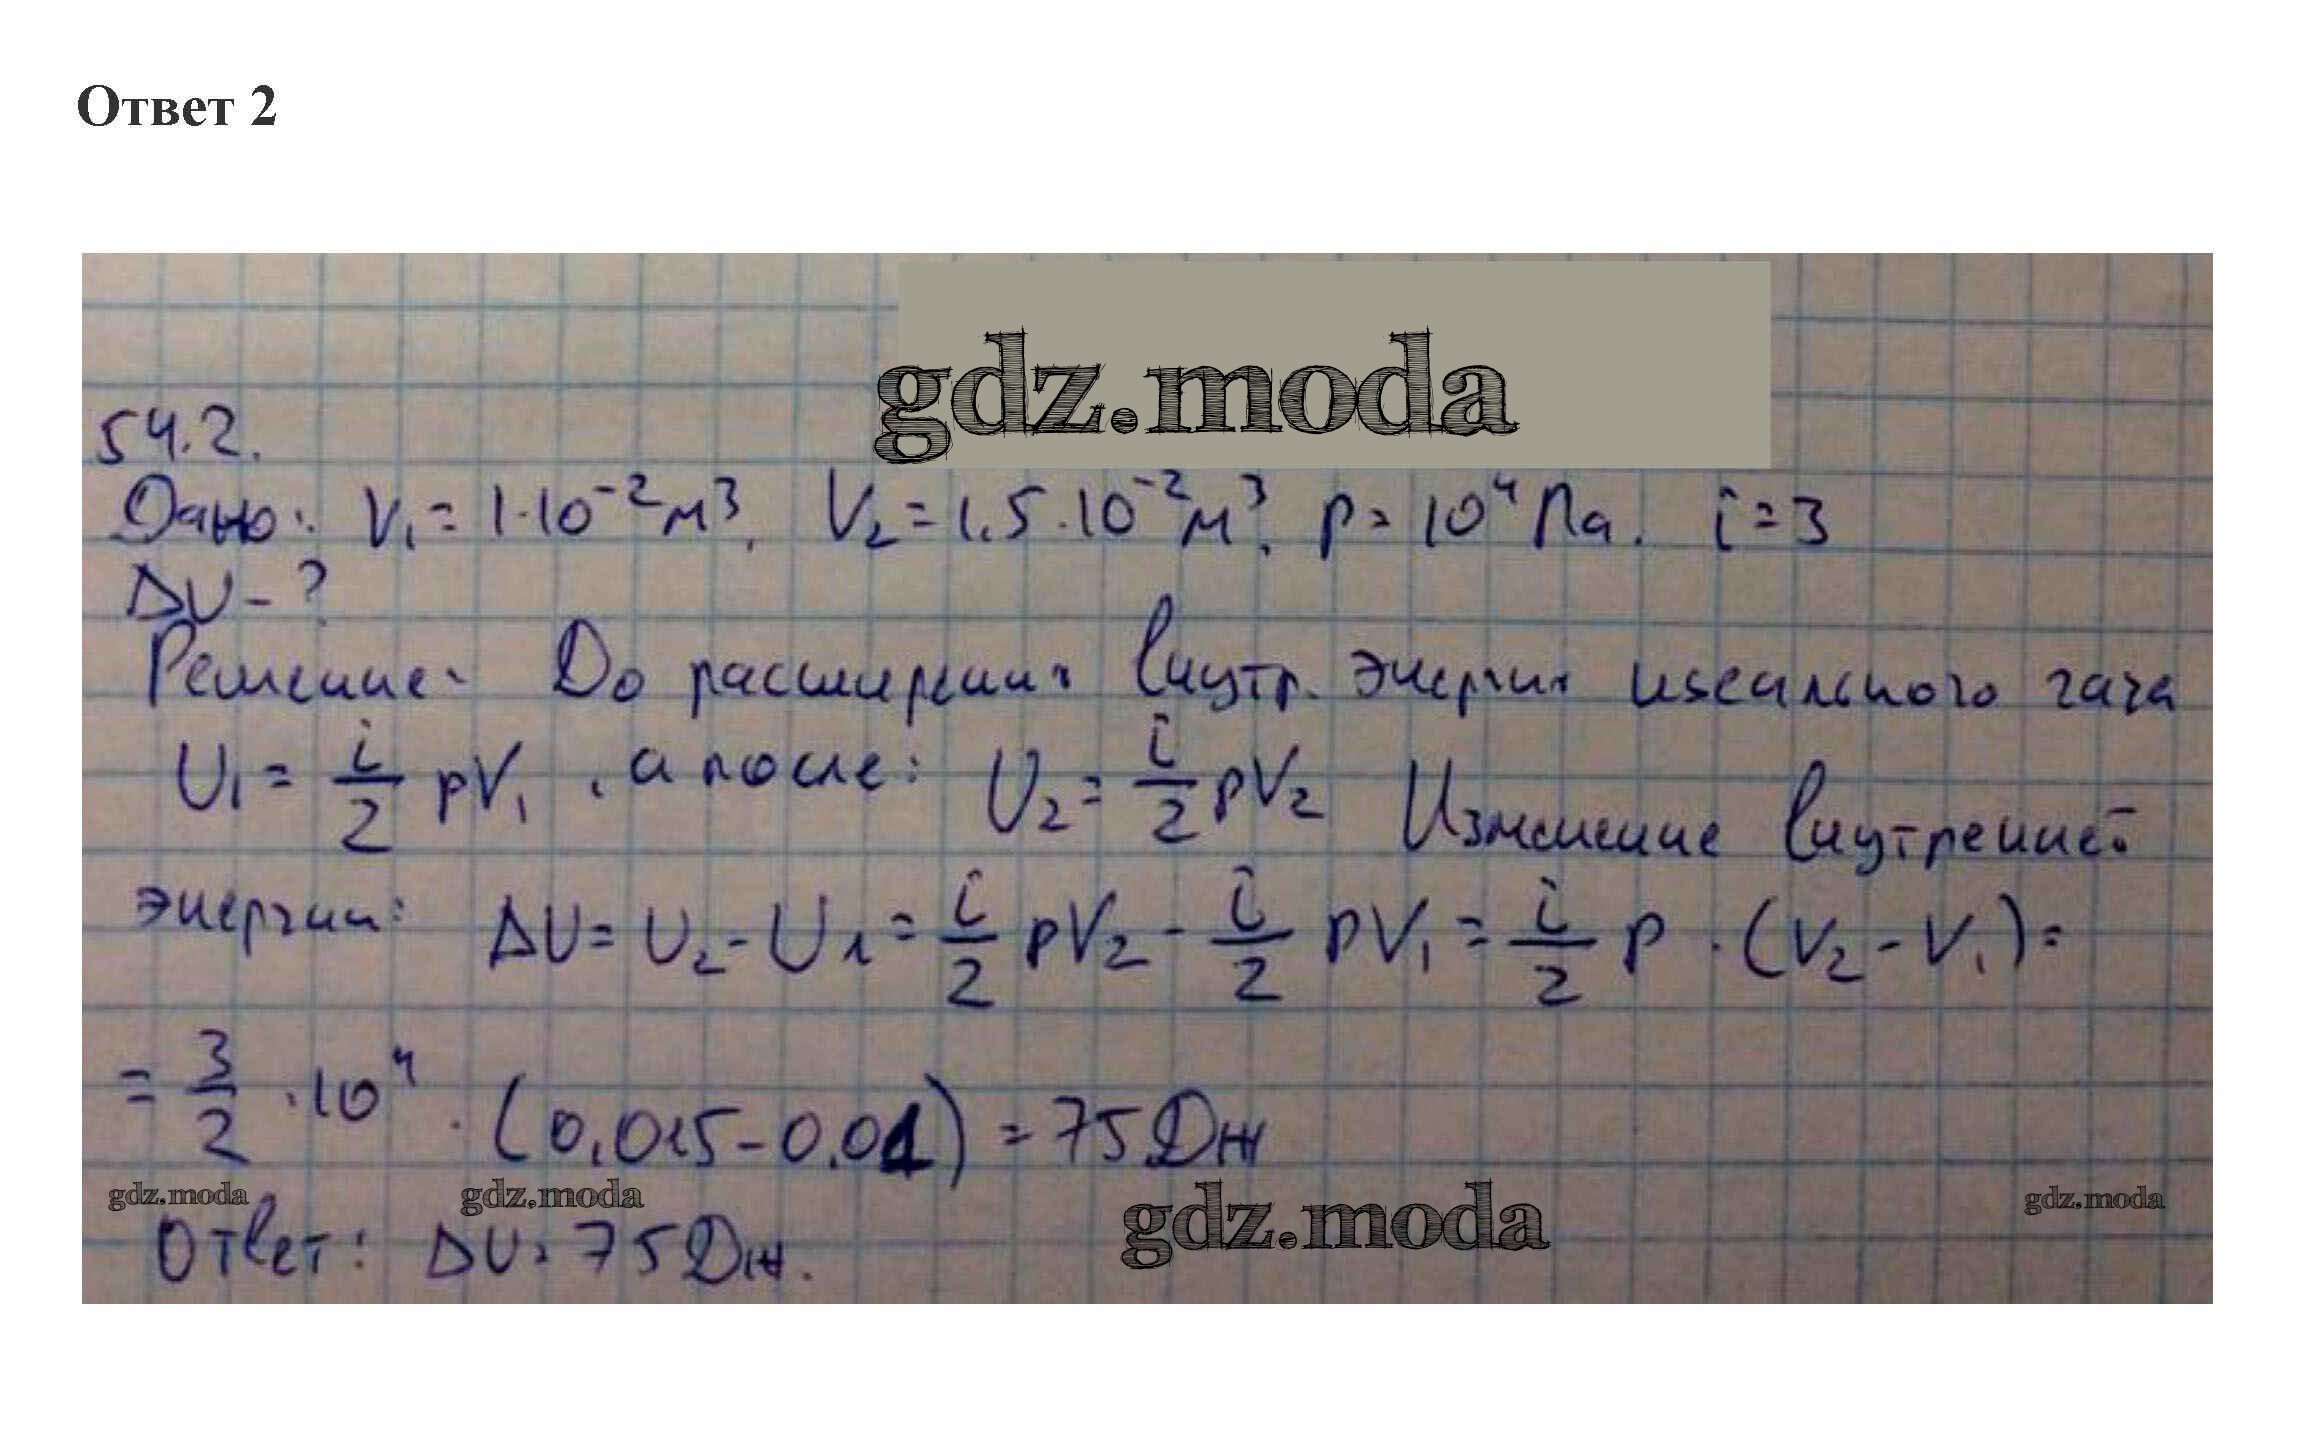 Ответ 2
gdz.moda
54.2.
Дано: V₁ = 1·10⁻² м³, V₂ = 1,5·10⁻² м³, p = 10⁴ Па. i = 3
ΔU - ?
Решение: До расширения внутр. энергия идеального газа
U₁ = i/2 pV₁, а после: U₂ = i/2 pV₂ Изменение внутренней
энергии: ΔU = U₂ - U₁ = i/2 pV₂ - i/2 pV₁ = i/2 p · (V₂ - V₁) =
= 3/2 · 10⁴ · (0,015 - 0,01) = 75 Дж
gdz.moda gdz.moda gdz.moda gdz.moda
Ответ: ΔU = 75 Дж.